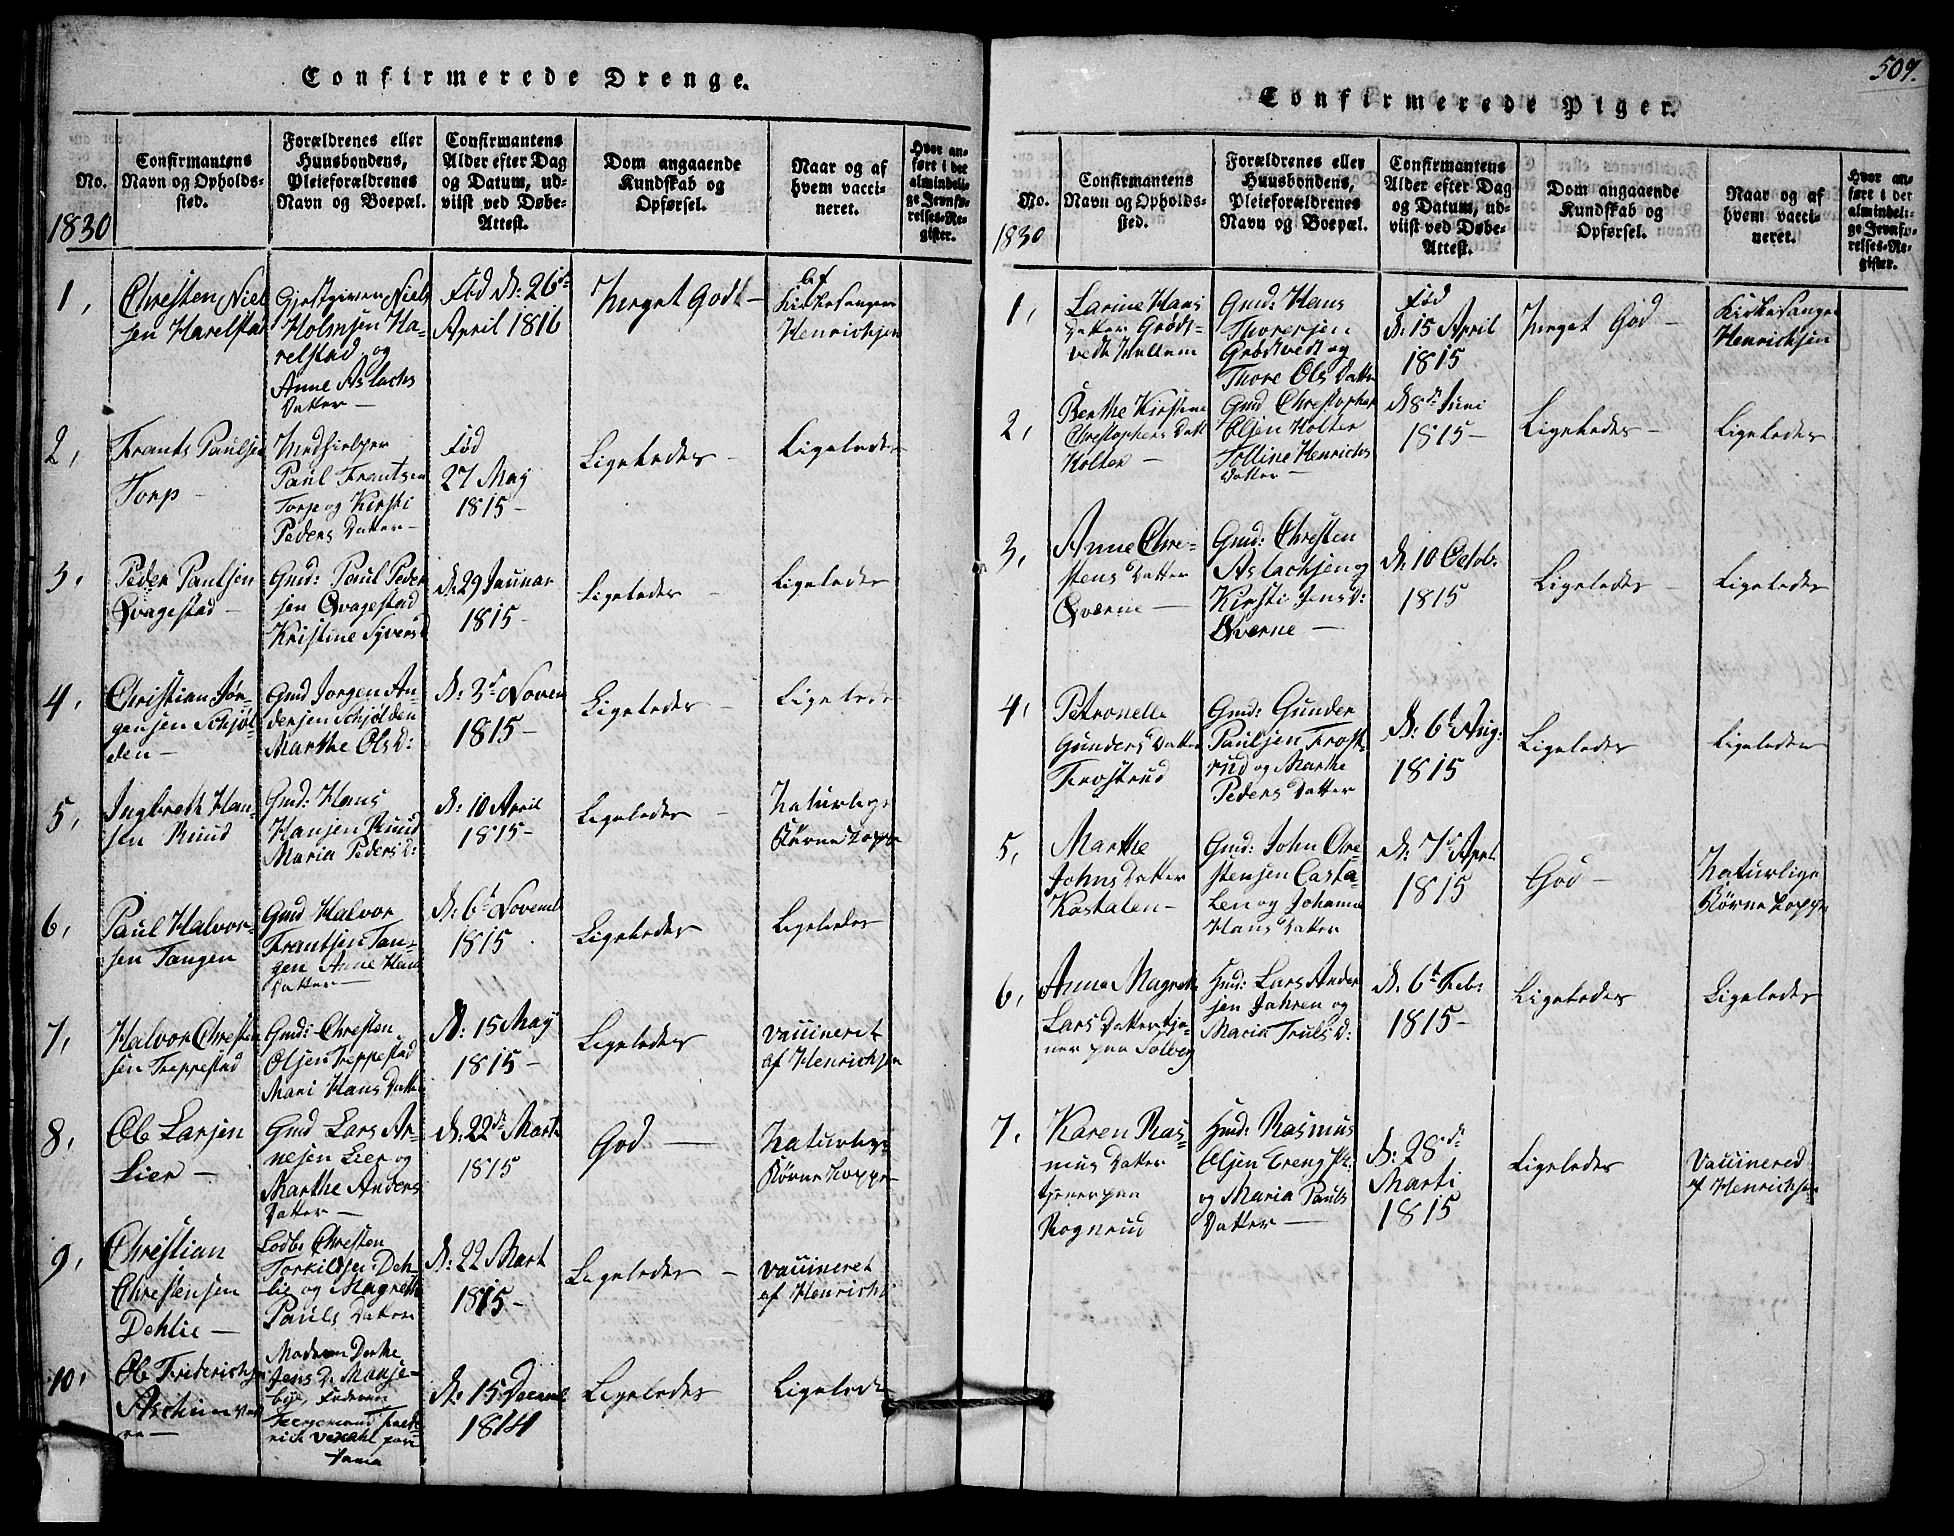 Confirmerede Drenge.
No.
Confirmantens
Navn og Opholds-
sted.
Forældrenes eller
Huusbondens,
Pleieforældrenes
Navn og Boepæl.
Confirmantens
Alder efter Dag
og Datum, ud-
viist ved Døbe-
Attest.
Dom angaaende
Kundskab og
Opførsel.
Naar og af
hvem vacci-
neret.
Hvor an-
ført i det
almindeli-
ge Jevnfø-
relses-Re-
gister.
1830
1,
Christen Niel
sen Harelstad
Gjestgiver Niels
Holmsen Ha-
relstad og
Anne Aslachs
Datter —
Fød D: 26de
April 1816
Meget Godt —
Af
Kirkesanger
Henrichsen
2,
Frants Paulsen
Torp
Medhielper
Paul Frantsen
Torp og Kirsti
Peders Datter —
Fød
27 May
1815 —
Ligeledes —
Ligeledes
3,
Peder Paulsen
Qvagestad —
Gmd: Paul Peder
sen Qvagestad
Kristine Syversd
D: 29 Januar
1815 —
Ligeledes —
Ligeledes
4,
Christian Jør-
gensen Schjøl
den —
Gmd Jorgen An-
dersen Schjølden
Marthe Ols D:
D: 3de Novem
1815 —
Ligeledes —
Ligeledes
5,
Ingbreth Han-
sen Ruud
Gmd: Hans
Hansen Ruud
Maria Peders D:
D: 10 April
1815 —
Ligeledes —
Naturlige
Børnekopper
6,
Paul Halvor-
sen Tangen
Gmd Halvor
Frantsen Tan-
gen Anne Hans
Datter —
D: 6t Novemb
1815
Ligeledes
Ligeledes
7,
Halvor Christen
sen Treppestad
Gmd: Christen
Olsen Treppestad
Mari Hans Datter
D: 15 May
1815 —
Ligeledes
Vaccineret
af Henrichsen
8,
Ole Larsen
Lier —
Gmd Lars Ar-
nesen Lier og
Marthe Anders
Datter —
D: 22de Marts
1815
God —
Naturlige
Børnekopper
9,
Christian
Christensen
Dehlie —
Christen
Torkildsen Deh-
lie og Magrethe
Pauls Datter
D: 22 Mart
1815 —
Ligeledes —
Vaccineret
af Henrichs
10,
Ole Friderichsen
Moderen Dorthe
Jens D.
Faderen
D: 15 Decemb
1814
Ligeledes
Ligeledes
509.
Confirmerede Piger.
No.
Confirmantens
Navn og Opholds-
sted.
Forældrenes eller
Huusbondens,
Pleieforældrenes
Navn og Boepæl.
Confirmantens
Alder efter Dag
og Datum, ud-
viist ved Døbe-
Attest.
Dom angaaende
Kundskab og
Opførsel.
Naar og af
hvem vacci-
neret.
Hvor an-
ført i det
almindeli-
ge Jevnfø-
relses-Re-
gister.
1830
1,
Larine Hans
Datter Grøds-
vedt
Gmd: Hans
Thoresen
Grødtvedt og
Thore Ols Datter
Fød
D: 15 April
1815
Meget God —
Kirkesanger
Henrichsen
2,
Berthe Kirstine
Christophers Datt
Holter —
Gmd Christopher
Olsen Holter
Tolline Henrichs
Datter —
D 8de Juni
1815 —
Ligeledes —
Ligeledes
3,
Anne Chri-
stens Datter
Qværne —
Gmd: Christen
Aslachsen og
Kirsti Jens D:
Qværne —
D: 10 Octob:
1815
Ligeledes —
Ligeledes
4,
Petronelle
Gunders Datter
Frostrud
Gmd: Gunder
Paulsen Frost-
rud og Marthe
Peders Datter
D: 6t Aug:
1815
Ligeledes
Ligeledes
5,
Marthe
Johns Datter
Kastalen —
Gmd: John Chri
stensen Casta-
len og Johanne
Hans Datter
D: 7de April
1815
God —
Naturlige
Børnekopper
6,
Anne Magrethe
Lars Datter tje-
ner paa Solberg
Hmd: Lars Ander
sen Jahren og
Maria Truls D:
D: 6t Feb:
1815 —
Ligeledes
Ligeledes
7,
Karen Ras-
mus Datter
tjener paa
Rognerud
Hmd: Rasmus
Olsen
og Maria Pauls
Datter —
D: 28de
Marti
1815
Ligeledes
Vaccinered
af Henrichsen